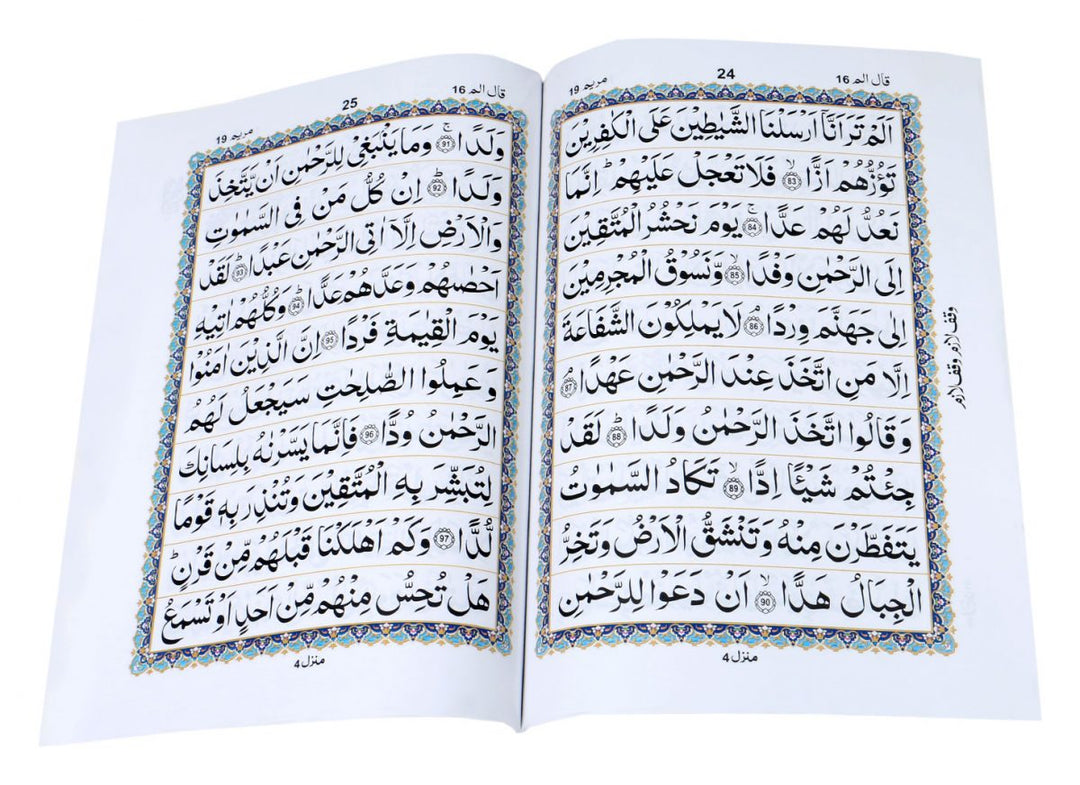 مريم 19
24
قال الم 16
اَلَمْ تَرَ اَنَّاۤ اَرْسَلْنَا الشَّيٰطِيْنَ عَلَى الْكٰفِرِيْنَ
تَؤُزُّهُمْ اَزًّا ۙ ﴿83﴾ فَلَا تَعْجَلْ عَلَيْهِمْ ؕ اِنَّمَا
نَعُدُّ لَهُمْ عَدًّا ۚ ﴿84﴾ يَوْمَ نَحْشُرُ الْمُتَّقِيْنَ
اِلَى الرَّحْمٰنِ وَفْدًا ۙ ﴿85﴾ وَّنَسُوْقُ الْمُجْرِمِيْنَ
اِلٰى جَهَنَّمَ وِرْدًا ۘ ﴿86﴾ لَا يَمْلِكُوْنَ الشَّفَاعَةَ
اِلَّا مَنِ اتَّخَذَ عِنْدَ الرَّحْمٰنِ عَهْدًا ۘ ﴿87﴾
وَقَالُوا اتَّخَذَ الرَّحْمٰنُ وَلَدًا ؕ ﴿88﴾ لَقَدْ
جِئْتُمْ شَيْـًٔا اِدًّا ۙ ﴿89﴾ تَكَادُ السَّمٰوٰتُ
يَتَفَطَّرْنَ مِنْهُ وَتَنْشَقُّ الْاَرْضُ وَتَخِرُّ
الْجِبَالُ هَدًّا ۙ ﴿90﴾ اَنْ دَعَوْا لِلرَّحْمٰنِ
وقف لازم وقف لازم
منزل 4
مريم 19
25
قال الم 16
وَلَدًا ۚ ﴿91﴾ وَمَا يَنْۢبَغِيْ لِلرَّحْمٰنِ اَنْ يَّتَّخِذَ
وَلَدًا ؕ ﴿92﴾ اِنْ كُلُّ مَنْ فِى السَّمٰوٰتِ
وَالْاَرْضِ اِلَّاۤ اٰتِى الرَّحْمٰنِ عَبْدًا ؕ ﴿93﴾ لَقَدْ
اَحْصٰىهُمْ وَعَدَّهُمْ عَدًّا ؕ ﴿94﴾ وَكُلُّهُمْ اٰتِيْهِ
يَوْمَ الْقِيٰمَةِ فَرْدًا ﴿95﴾ اِنَّ الَّذِيْنَ اٰمَنُوْا
وَعَمِلُوا الصّٰلِحٰتِ سَيَجْعَلُ لَهُمُ
الرَّحْمٰنُ وُدًّا ﴿96﴾ فَاِنَّمَا يَسَّرْنٰهُ بِلِسَانِكَ
لِتُبَشِّرَ بِهِ الْمُتَّقِيْنَ وَتُنْذِرَ بِهٖ قَوْمًا
لُّدًّا ﴿97﴾ وَكَمْ اَهْلَكْنَا قَبْلَهُمْ مِّنْ قَرْنٍ ؕ
هَلْ تُحِسُّ مِنْهُمْ مِّنْ اَحَدٍ اَوْ تَسْمَعُ
منزل 4